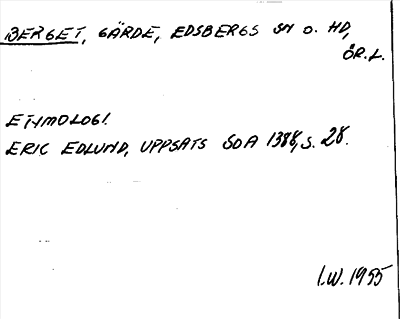 BERGET, GÄRDE, EDSBERGS SN O. HD,
ÖR.L.
ETYMOLOGI.
ERIC EDLUND, UPPSATS SOA 1388, S. 28.
I.W. 1955